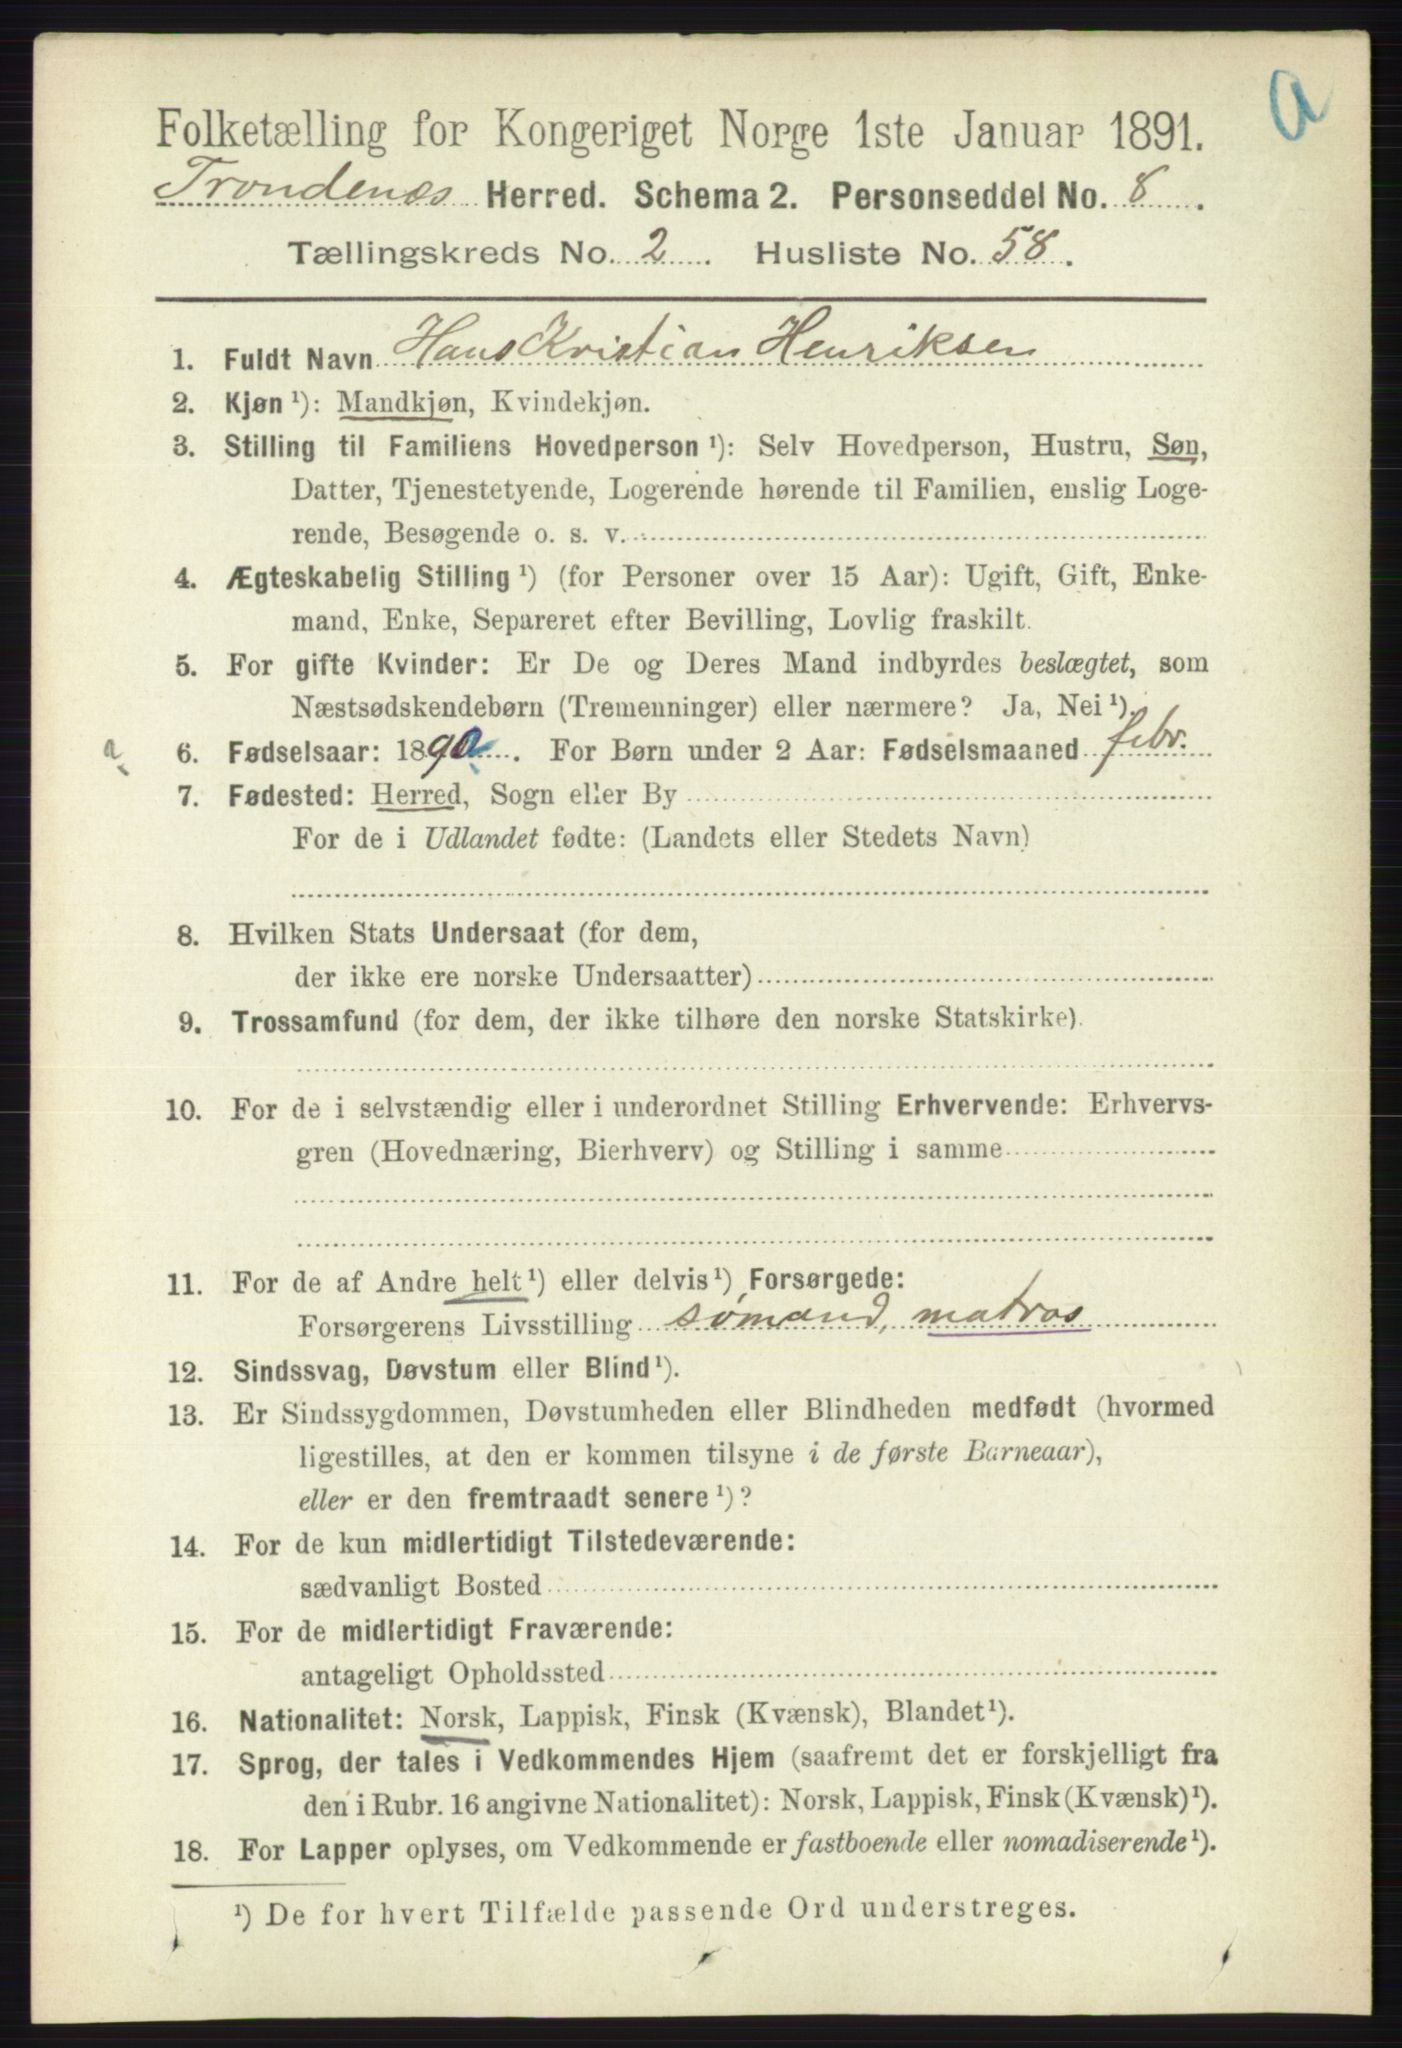 a
Folketælling for Kongeriget Norge 1ste Januar 1891.
Trondenæs Herred. Schema 2. Personseddel No. 8.
Tællingskreds No. 2. Husliste No. 58.
1. Fuldt Navn Hans Kristian Henriksen
2. Kjøn ¹): Mandkjøn, Kvindekjøn.
3. Stilling til Familiens Hovedperson ¹): Selv Hovedperson, Hustru, Søn,
Datter, Tjenestetyende, Logerende hørende til Familien, enslig Loge-
rende, Besøgende o. s. v.
4. Ægteskabelig Stilling ¹) (for Personer over 15 Aar): Ugift, Gift, Enke-
mand, Enke, Separeret efter Bevilling, Lovlig fraskilt.
5. For gifte Kvinder: Er De og Deres Mand indbyrdes beslægtet, som
Næstsødskendebørn (Tremenninger) eller nærmere? Ja, Nei ¹).
a 6. Fødselsaar: 1890. For Børn under 2 Aar: Fødselsmaaned febr.
7. Fødested: Herred, Sogn eller By
For de i Udlandet fødte: (Landets eller Stedets Navn)
8. Hvilken Stats Undersaat (for dem,
der ikke ere norske Undersaatter)
9. Trossamfund (for dem, der ikke tilhøre den norske Statskirke).
10. For de i selvstændig eller i underordnet Stilling Erhvervende: Erhvervs-
gren (Hovednæring, Bierhverv) og Stilling i samme
11. For de af Andre helt ¹) eller delvis ¹) Forsørgede:
Forsørgerens Livsstilling sømand, matros
12. Sindssvag, Døvstum eller Blind ¹).
13. Er Sindssygdommen, Døvstumheden eller Blindheden medfødt (hvormed
ligestilles, at den er kommen tilsyne i de første Barneaar),
eller er den fremtraadt senere ¹)?
14. For de kun midlertidigt Tilstedeværende:
sædvanligt Bosted
15. For de midlertidigt Fraværende:
antageligt Opholdssted
16. Nationalitet: Norsk, Lappisk, Finsk (Kvænsk), Blandet ¹).
17. Sprog, der tales i Vedkommendes Hjem (saafremt det er forskjelligt fra
den i Rubr. 16 angivne Nationalitet): Norsk, Lappisk, Finsk (Kvænsk) ¹).
18. For Lapper oplyses, om Vedkommende er fastboende eller nomadiserende ¹).
¹) De for hvert Tilfælde passende Ord understreges.